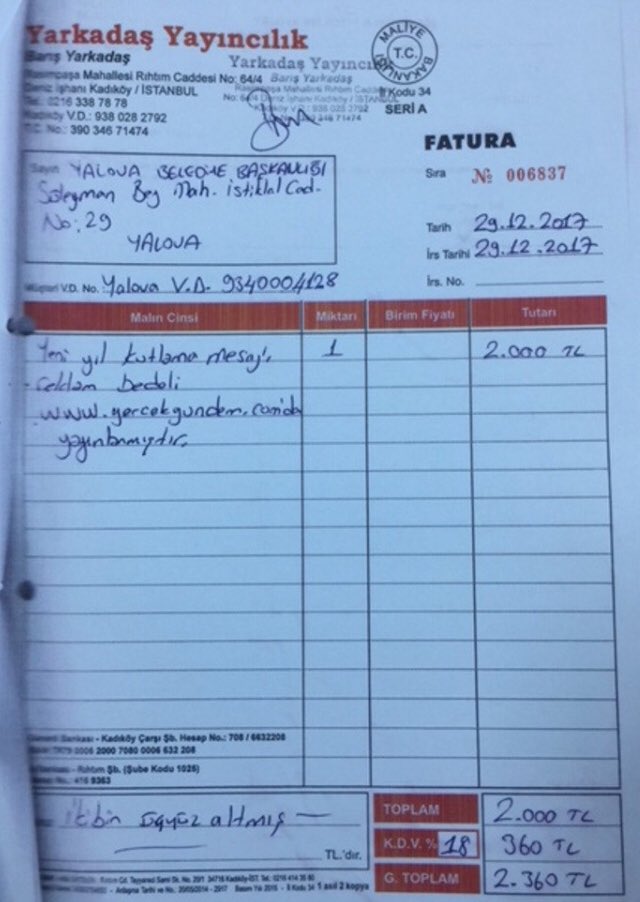 Yarkadaş Yayıncılık
Barış Yarkadaş
Rasimpaşa Mahallesi Rıhtım Caddesi No: 64/4
Deniz İşhanı Kadıköy / İSTANBUL
Tel.: 0216 338 78 78
Kadıköy V.D.: 938 028 2792
T.C. No.: 390 346 71474
Yarkadaş Yayıncılık
Barış Yarkadaş
Rasimpaşa Mahallesi Rıhtım Caddesi
No: 64/4 Deniz İşhanı Kadıköy/İSTANBUL
Kadıköy V.D.: 938 028 2792
71474
MALİYE
T.C.
BAKANLIĞI
İl Kodu 34
SERİ A
FATURA
Sıra № 006837
Sayın YALOVA BELEDİYE BAŞKANLIĞI
Süleyman Bey Mah. İstiklal Cad.
No: 29
YALOVA
Tarih 29.12.2017
İrs Tarihi 29.12.2017
İrs. No.
Müşteri V.D. No. Yalova V.D. 9340004128
Malın Cinsi Miktarı Birim Fiyatı Tutarı
Yeni yıl kutlama mesajı 1 2.000 TL
reklam bedeli
www.gercekgundem.com'da
yayınlanmıştır.
Bankası - Kadıköy Çarşı Şb. Hesap No.: 708 / 6632208
2000 7080 0006 632 208
Rıhtım Şb. (Şube Kodu 1025)
416 9363
İkibin üçyüz altmış —
TL.'dır.
TOPLAM 2.000 TL
K.D.V. % 18 360 TL
G. TOPLAM 2.360 TL
Cd. Tayyareci Sami Sk. No. 20/1 34716 Kadıköy-İST. Tel: 0216 414 35 80
Anlaşma Tarihi ve No.: 20/05/2014 - 2917 Basım Yılı 2015 - İl Kodu 34 1 asıl 2 kopya